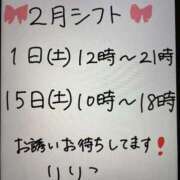 2月シフト
1日(土)12時〜21時
15日(土)10時〜18時
お誘いお待ちしてます❗